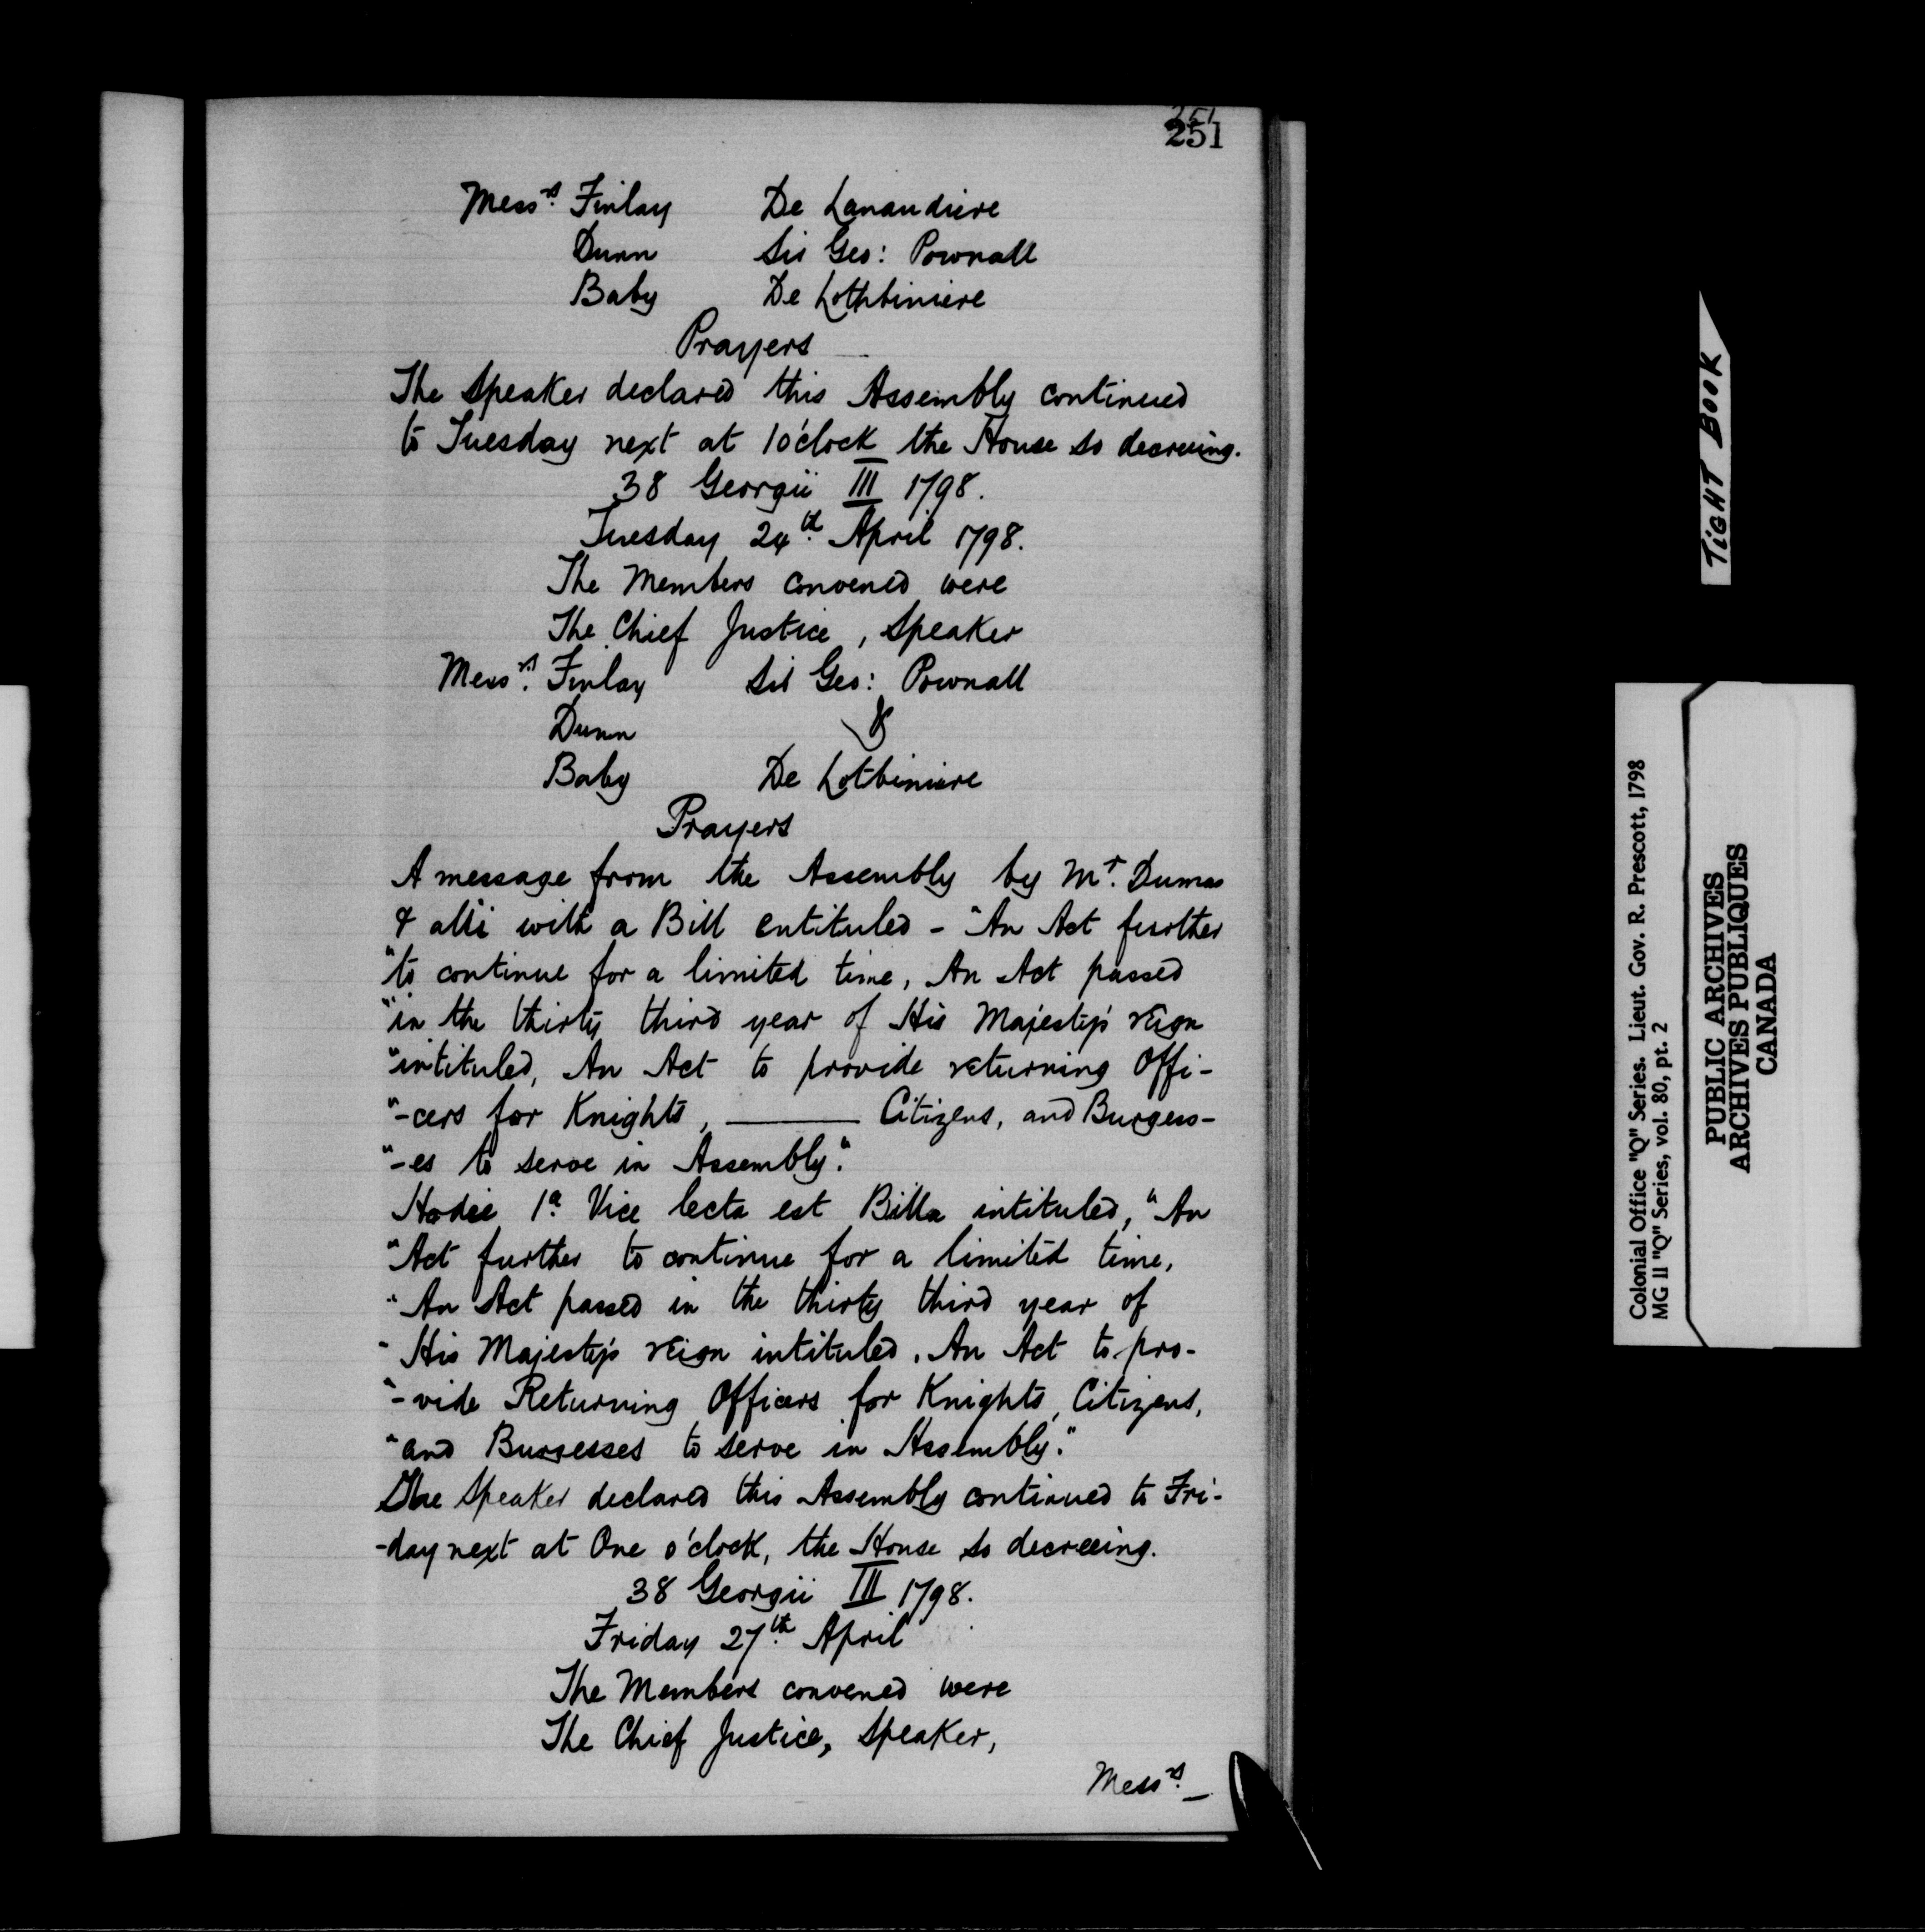 251
251
Mess.rs Finlay De Lanaudiere
Dunn Sir Geo: Pownall
Baby De Lothbiniere
Prayers
The Speaker declared this Assembly continued
to Tuesday next at 1 o'clock the House so decreeing.
38 Georgii III 1798.
Tuesday 24th April 1798.
The Members convened were
The Chief Justice, Speaker
Mess.rs Finlay Sir Geo: Pownall
Dunn &
Baby De Lotbiniere
Prayers
A message from the Assembly by Mr. Dumas
& alli with a Bill entituled - "An Act further
"to continue for a limited time, An Act passed
"in the thirty third year of His Majesty's reign
"intituled, An Act to provide returning Offi-
"-cers for Knights, ——— Citizens, and Burgess-
"-es to serve in Assembly."
Hodie 1a. Vice lecta est Billa intituled, "An
"Act further to continue for a limited time,
"An Act passed in the thirty third year of
"His Majesty's reign intituled, An Act to pro-
"-vide Returning Officers for Knights, Citizens,
"and Burgesses to serve in Assembly."
The Speaker declared this Assembly continued to Fri-
-day next at One o'clock, the House so decreeing.
38 Georgii III 1798.
Friday 27th April
The Members convened were
The Chief Justice, Speaker,
Mess.rs —
TIGHT BOOK
Colonial Office "Q" Series. Lieut. Gov. R. Prescott, 1798
MG 11 "Q" Series, vol. 80, pt. 2
PUBLIC ARCHIVES
ARCHIVES PUBLIQUES
CANADA